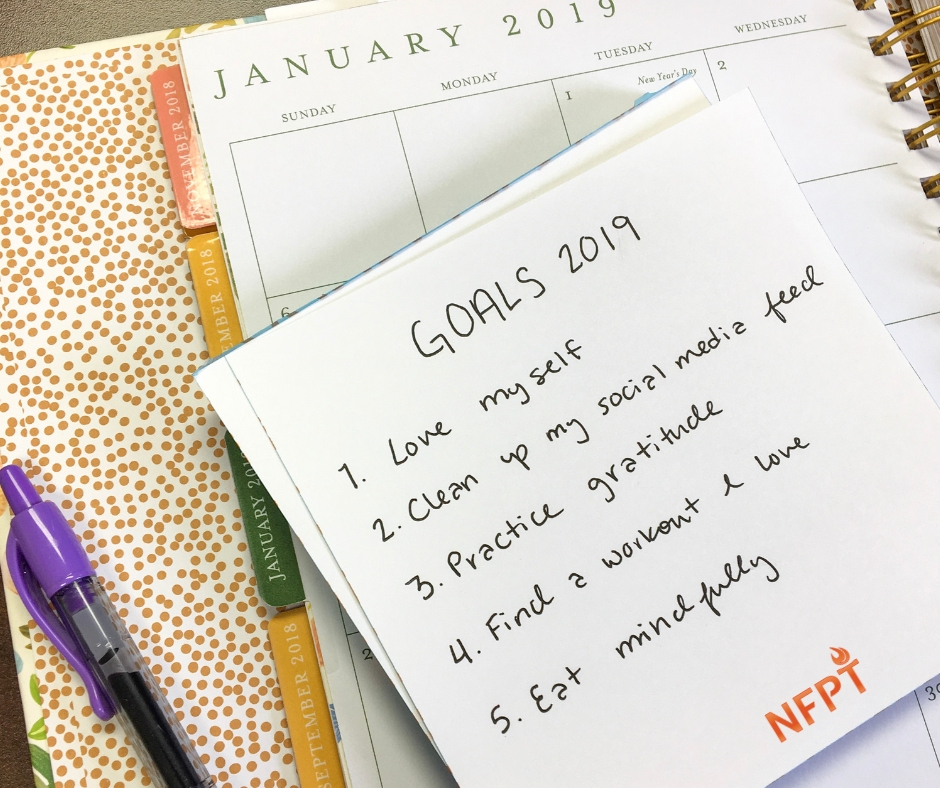 JANUARY 2019
SUNDAY MONDAY TUESDAY WEDNESDAY
1 New Year's Day 2
6
NOVEMBER 2018
EMBER 2018
JANUARY 201
SEPTEMBER 2018
GOALS 2019
1. Love myself
2. Clean up my social media feed
3. Practice gratitude
4. Find a workout I love
5. Eat mindfully
NFPT
2
30